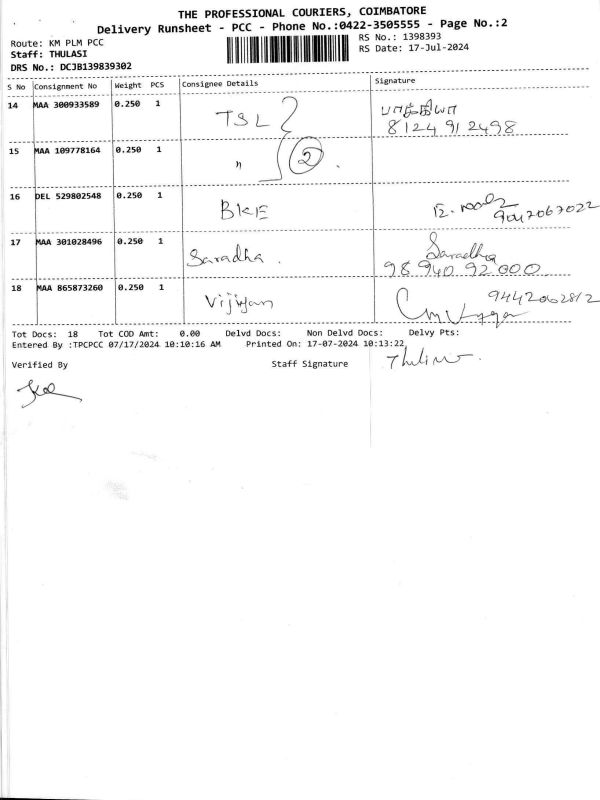 THE PROFESSIONAL COURIERS, COIMBATORE
Delivery Runsheet - PCC - Phone No.:0422-3505555 - Page No.:2
Route: KM PLM PCC
RS No.: 1398393
Staff: THULASI
RS Date: 17-Jul-2024
DRS No.: DCJB139839302
S No Consignment No Weight PCS Consignee Details Signature
14 MAA 300933589 0.250 1 TSL பாக்கியா
8124912498
15 MAA 109778164 0.250 1 " 2
16 DEL 529802548 0.250 1 BKE
9047067022
17 MAA 301028496 0.250 1 Saradha. Saradha
98 940 92 000
18 MAA 865873260 0.250 1 Vijiyan 9442062812
Tot Docs: 18 Tot COD Amt: 0.00 Delvd Docs: Non Delvd Docs: Delvy Pts:
Entered By :TPCPCC 07/17/2024 10:10:16 AM Printed On: 17-07-2024 10:13:22
Verified By Staff Signature